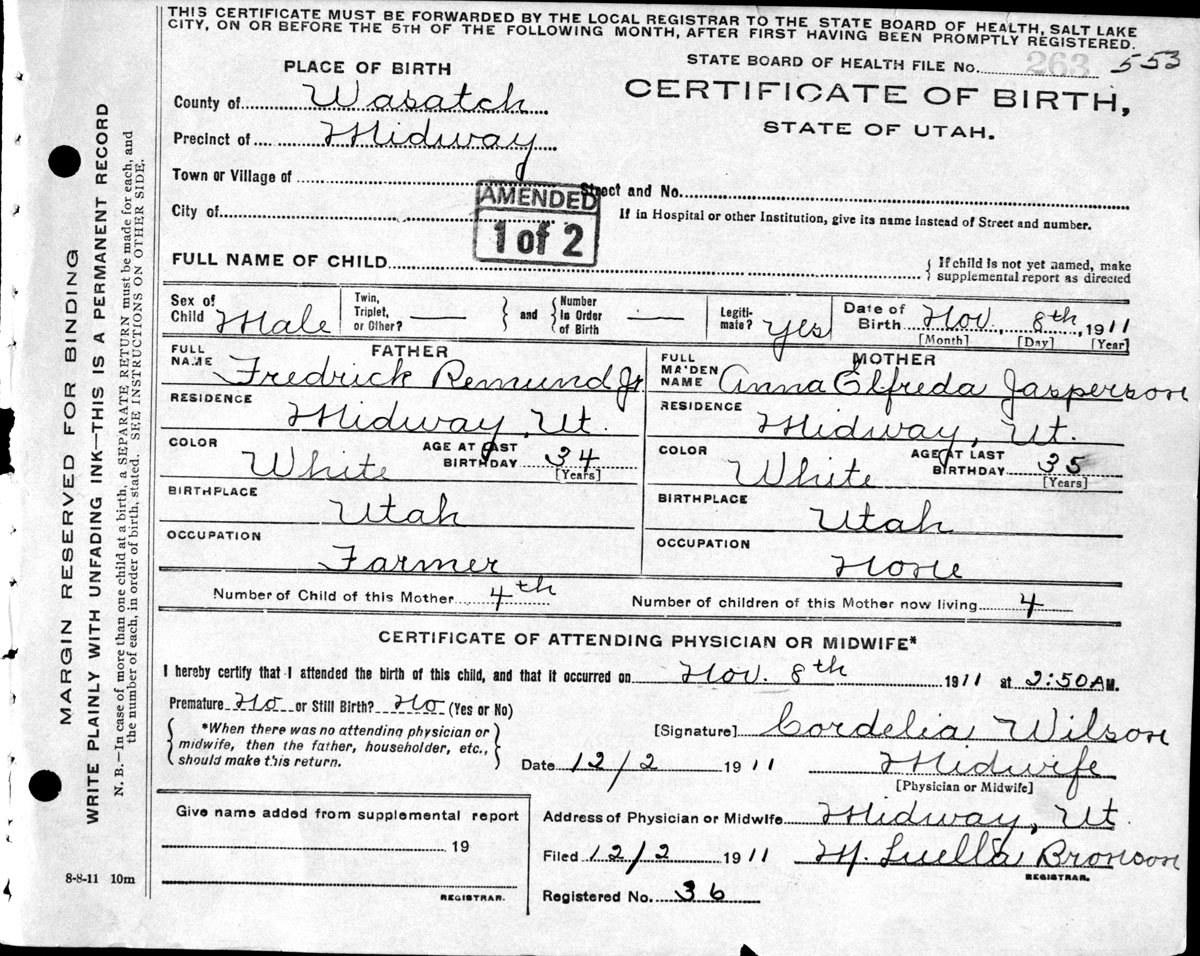 THIS CERTIFICATE MUST BE FORWARDED BY THE LOCAL REGISTRAR TO THE STATE BOARD OF HEALTH, SALT LAKE
CITY, ON OR BEFORE THE 5TH OF THE FOLLOWING MONTH, AFTER FIRST HAVING BEEN PROMPTLY REGISTERED.
STATE BOARD OF HEALTH FILE No. 263 553
PLACE OF BIRTH
CERTIFICATE OF BIRTH,
STATE OF UTAH.
County of Wasatch
Precinct of Midway
Town or Village of
Street and No.
AMENDED
1 of 2
City of
If in Hospital or other Institution, give its name instead of Street and number.
FULL NAME OF CHILD
{ If child is not yet named, make
supplemental report as directed
Sex of Child Male
Twin, Triplet, or Other? —
} and { Number in Order of Birth —
Legiti-mate? Yes
Date of Birth Nov. 8th, 1911
[Month] [Day] [Year]
FATHER
FULL NAME Fredrick Remund Jr.
RESIDENCE Midway, Ut.
COLOR White AGE AT LAST BIRTHDAY 34
[Years]
BIRTHPLACE Utah
OCCUPATION Farmer
MOTHER
FULL MAIDEN NAME Anna Elfreda Jasperson
RESIDENCE Midway, Ut.
COLOR White AGE AT LAST BIRTHDAY 35
[Years]
BIRTHPLACE Utah
OCCUPATION None
Number of Child of this Mother 4th Number of children of this Mother now living 4
CERTIFICATE OF ATTENDING PHYSICIAN OR MIDWIFE*
I hereby certify that I attended the birth of this child, and that it occurred on Nov. 8th 1911 at 2:50 A M.
Premature No or Still Birth? No (Yes or No)
{ *When there was no attending physician or
midwife, then the father, householder, etc.,
should make this return. }
[Signature] Cordelia Wilson
Date 12/2 1911 Midwife
[Physician or Midwife]
Give name added from supplemental report
19
REGISTRAR.
Address of Physician or Midwife Midway, Ut.
Filed 12/2 1911 M. Luella Bronson
REGISTRAR.
Registered No. 36
8-8-11 10m
MARGIN RESERVED FOR BINDING
WRITE PLAINLY WITH UNFADING INK—THIS IS A PERMANENT RECORD
N. B.—In case of more than one child at a birth, a SEPARATE RETURN must be made for each, and
the number of each, in order of birth, stated. SEE INSTRUCTIONS ON OTHER SIDE.